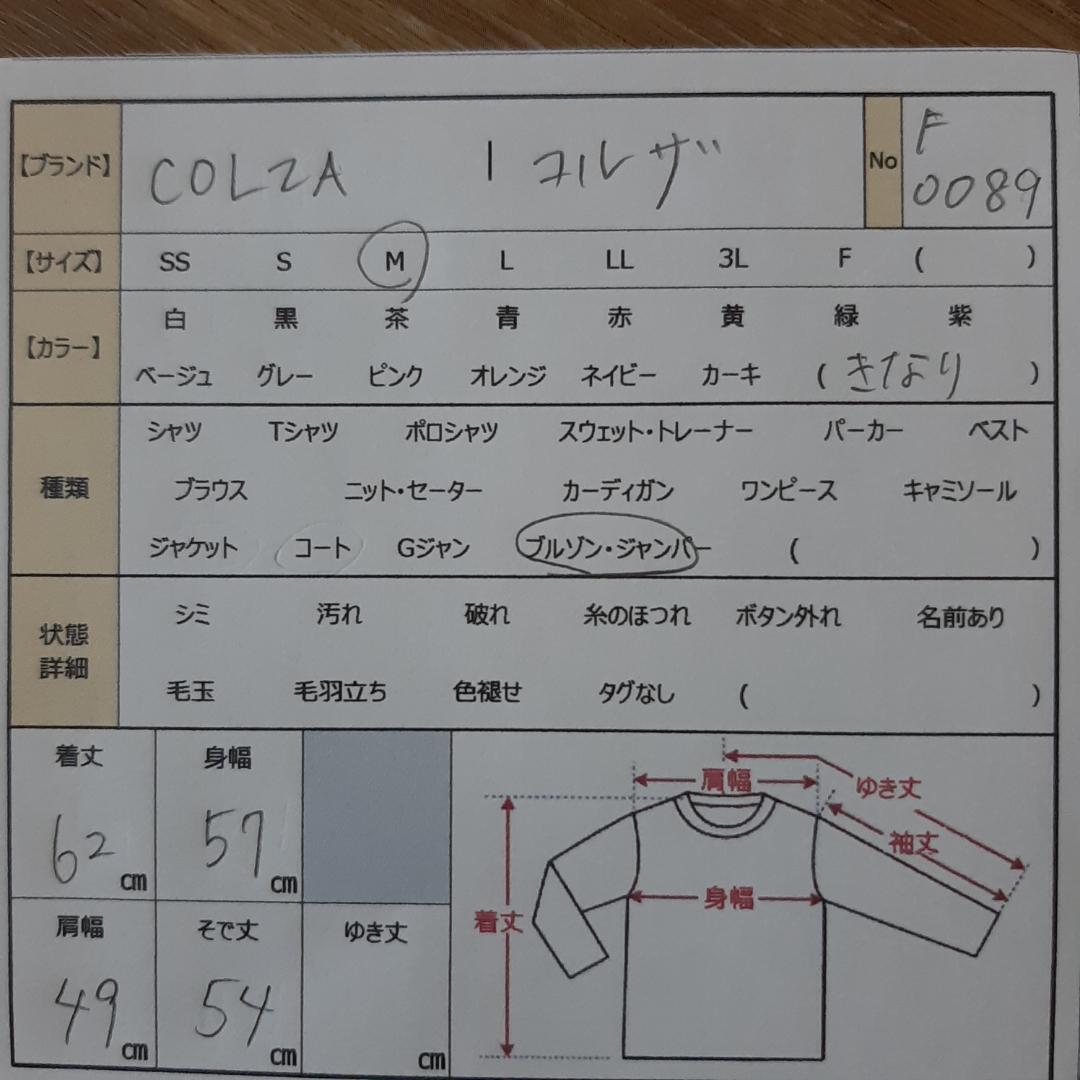 【ブランド】 COLZA | コルザ No F 0089
【サイズ】 SS S M L LL 3L F ( )
【カラー】 白 黒 茶 青 赤 黄 緑 紫
ベージュ グレー ピンク オレンジ ネイビー カーキ ( きなり )
種類 シャツ Tシャツ ポロシャツ スウェット・トレーナー パーカー ベスト
ブラウス ニット・セーター カーディガン ワンピース キャミソール
ジャケット コート Gジャン ブルゾン・ジャンパー ( )
状態詳細 シミ 汚れ 破れ 糸のほつれ ボタン外れ 名前あり
毛玉 毛羽立ち 色褪せ タグなし ( )
着丈 身幅
62 cm 57 cm
肩幅 そで丈 ゆき丈
49 cm 54 cm cm
肩幅 ゆき丈
袖丈
身幅
着丈